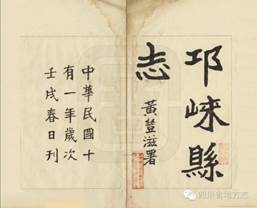 邛崍縣
志
黃䇓滋署
中華民國十
有一年歲次
壬戌春日刊
四川省地方志